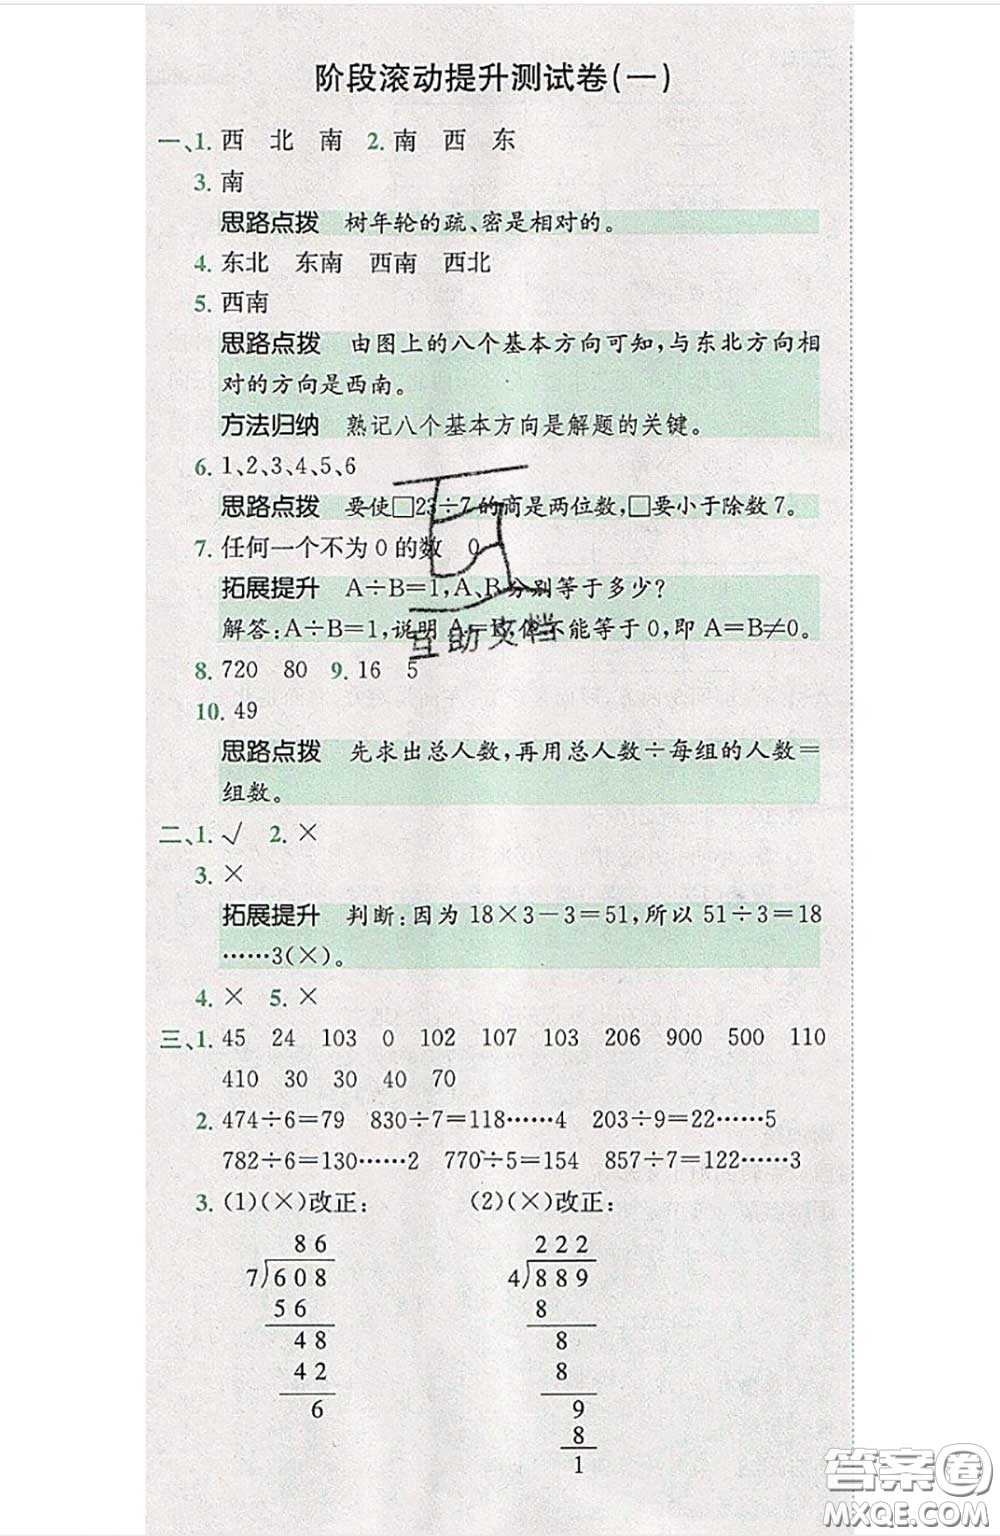 阶段滚动提升测试卷(一)
一、1. 西 北 南 2. 南 西 东
3. 南
思路点拨 树年轮的疏、密是相对的。
4. 东北 东南 西南 西北
5. 西南
思路点拨 由图上的八个基本方向可知,与东北方向相
对的方向是西南。
方法归纳 熟记八个基本方向是解题的关键。
6. 1、2、3、4、5、6
思路点拨 要使□23÷7的商是两位数,□要小于除数7。
7. 任何一个不为0的数 0
拓展提升 A÷B=1,A、B分别等于多少?
解答:A÷B=1,说明A=B,但不能等于0,即A=B≠0。
8. 720 80 9. 16 5
10. 49
思路点拨 先求出总人数,再用总人数÷每组的人数=
组数。
二、1. √ 2. ×
3. ×
拓展提升 判断:因为18×3-3=51,所以51÷3=18
……3(×)。
4. × 5. ×
三、1. 45 24 103 0 102 107 103 206 900 500 110
410 30 30 40 70
2. 474÷6=79 830÷7=118……4 203÷9=22……5
782÷6=130……2 770÷5=154 857÷7=122……3
3. (1)(×)改正: (2)(×)改正:
86 222
7)608 4)889
56 8
48 8
42 8
6 9
8
1
互助文档
答案圈
MXQE.COM